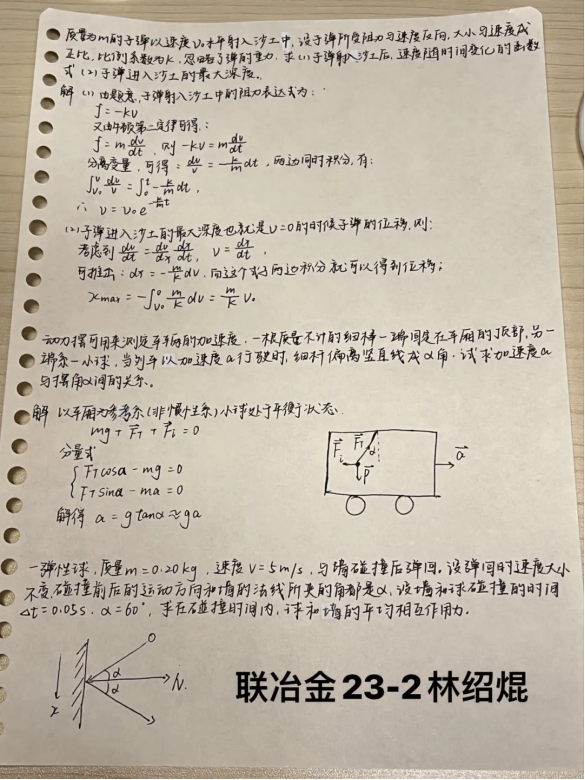 质量为m的子弹以速度v₀水平射入沙土中,设子弹所受阻力与速度反向,大小与速度成
正比,比例系数为k,忽略子弹的重力,求(1)子弹射入沙土后,速度随时间变化的函数
式(2)子弹进入沙土的最大深度。
解 (1)由题意,子弹射入沙土中的阻力表达式为:
f=-kv
又由牛顿第二定律可得:
f=m dv/dt, 则 -kv=m dv/dt
分离变量,可得: dv/v = -k/m dt, 两边同时积分,有:
∫_{v₀}^{v} dv/v = ∫_0^t -k/m dt,
∴ v=v₀e^{-k/m t}
(2)子弹进入沙土的最大深度也就是v=0的时候子弹的位移,则:
考虑到 dv/dt = dv/dx dx/dt, v=dx/dt,
可推出: dx=-m/k dv, 而这个式子两边积分就可以得到位移:
xmax=-∫_{v₀}^0 m/k dv = m/k v₀
动力摆可用来测定车厢的加速度.一根质量不计的细棒一端固定在车厢的顶部,另一
端系一小球,当列车以加速度a行驶时,细杆偏离竖直线成α角.试求加速度a
与摆角α间的关系。
解 以车厢为参考系(非惯性系)小球处于平衡状态.
mg+F⃗T+F⃗i=0
分量式
{ FTcosα-mg=0
FTsinα-ma=0
解得 a=gtanα≈gα
F⃗i F⃗T α P⃗ a⃗
一弹性球,质量m=0.20kg,速度v=5m/s,与墙碰撞后弹回,设弹回时速度大小
不变,碰撞前后的运动方向和墙的法线所夹的角都是α,设墙和球碰撞的时间
Δt=0.05s.α=60°,求在碰撞时间内,球和墙的平均相互作用力.
x α α N.
联冶金23-2林绍焜